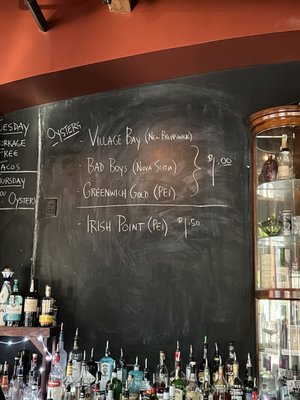 UESDAY
ORKAGE
FREE
TACOS
HURSDAY
OYSTERS
OYSTERS
- VILLAGE BAY (NEW BRUNSWICK)
- BAD BOYS (NOVA SCOTIA) $1.00
- GREENWICH GOLD (PEI)
- IRISH POINT (PEI) - $1.50